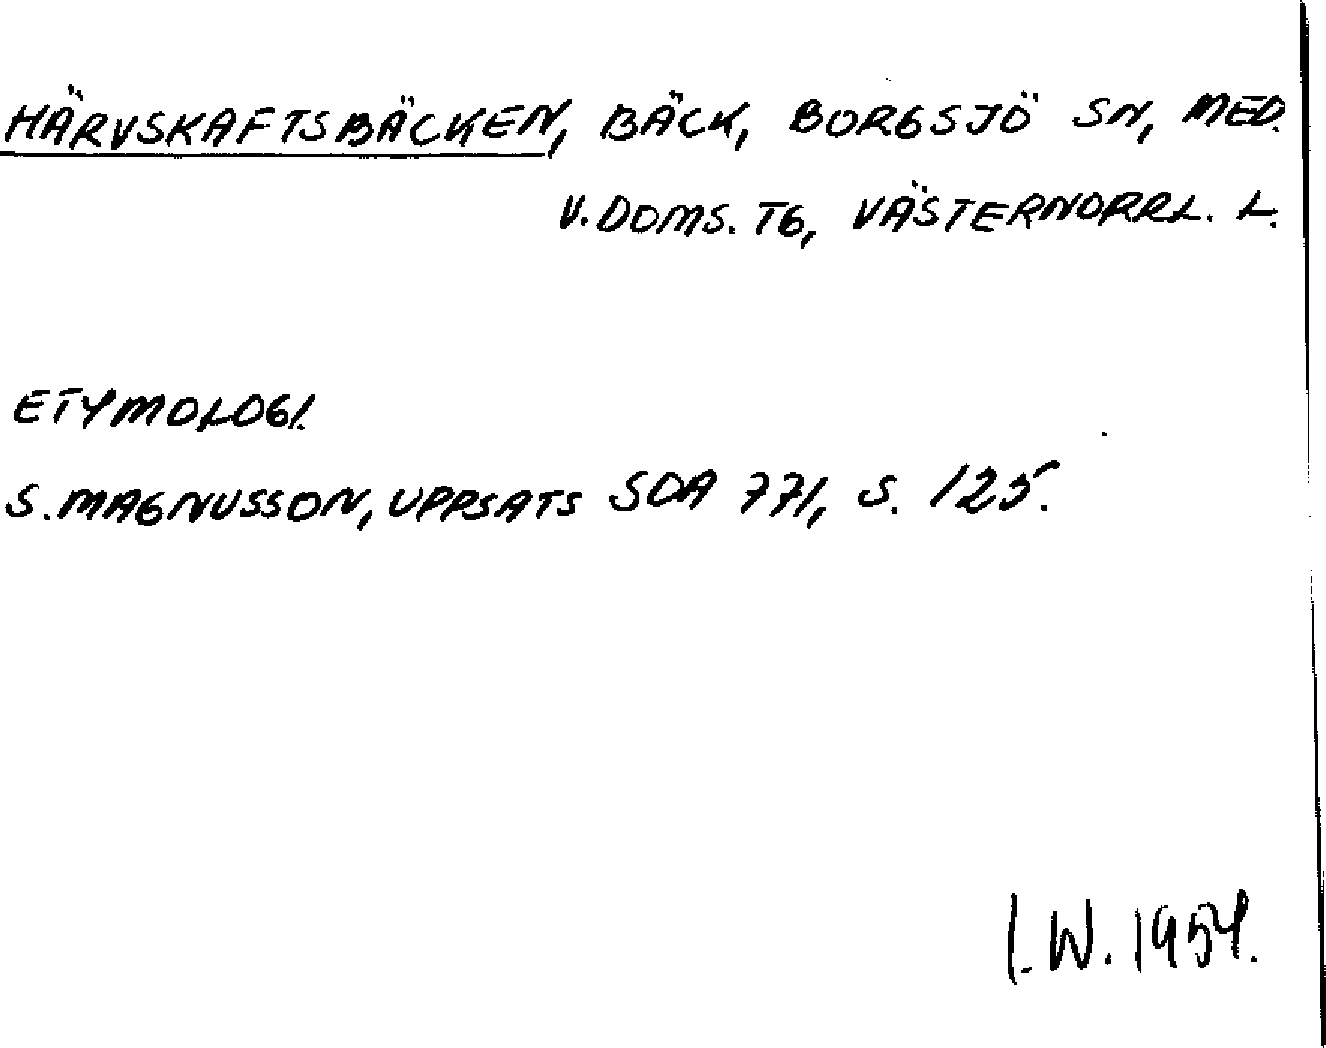 HÄRVSKAFTSBÄCKEN, BÄCK, BORGSJÖ SN, MED.
V. DOMS. TG, VÄSTERNORRL. L.
ETYMOLOGI.
S. MAGNUSSON, UPPSATS SOA 771, S. 125.
I.W. 1954.